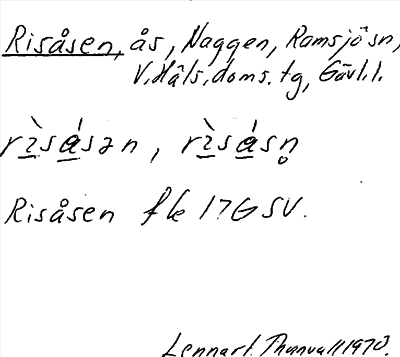 Risåsen, ås, Naggen, Ramsjö sn,
V. Häls. doms. tg, Gävl. l.
rı̀sásən, rı̀sásn̥
Risåsen fk 17G SV.
Lennart Thunvall 1970.